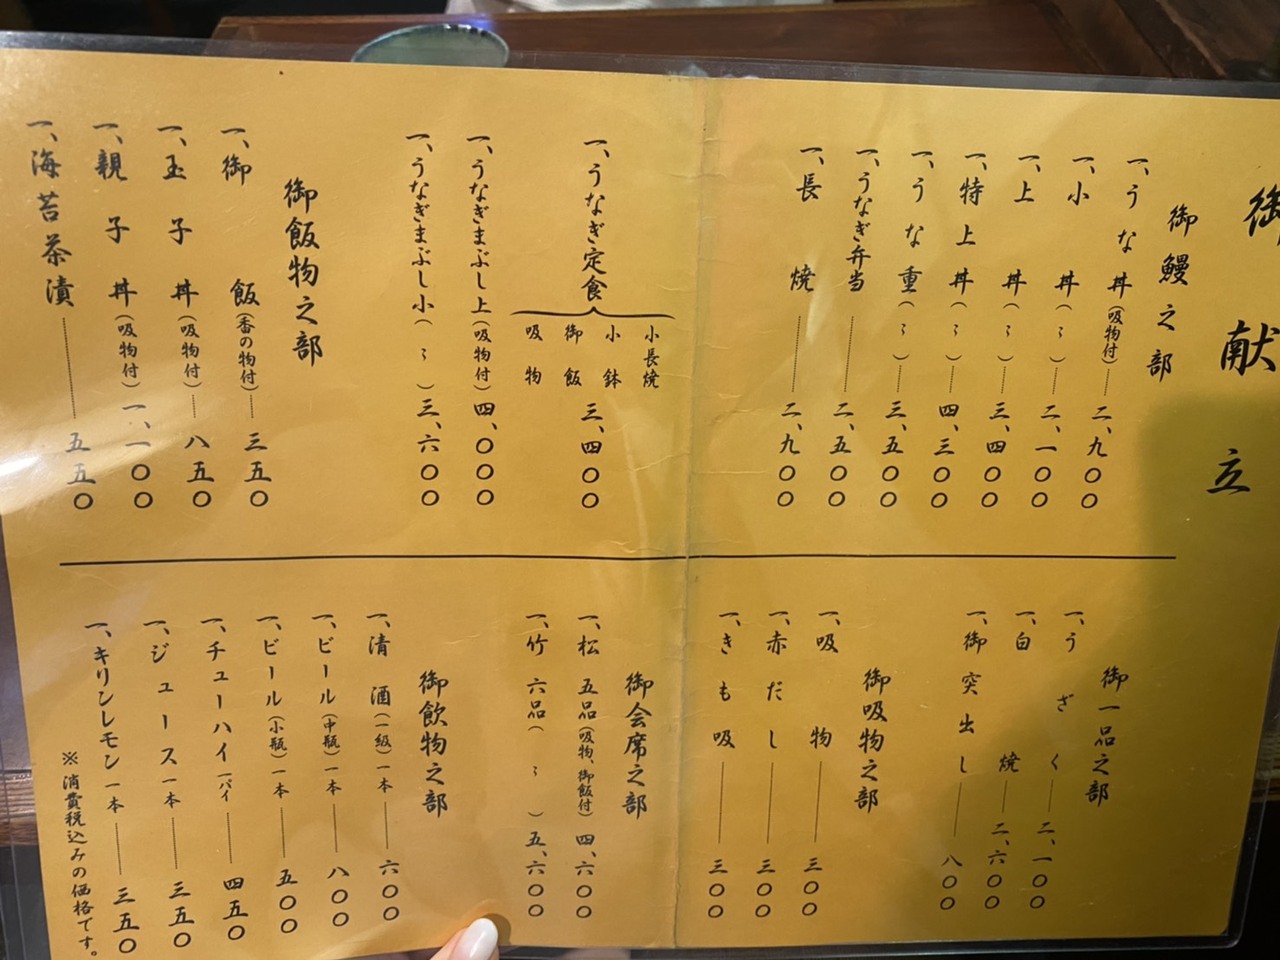 御献立
御鰻之部
一、うな丼(吸物付) 二、九〇〇
一、小丼(〃) 二、一〇〇
一、上丼(〃) 三、四〇〇
一、特上丼(〃) 四、三〇〇
一、うな重(〃) 三、五〇〇
一、うなぎ弁当 二、五〇〇
一、長焼 二、九〇〇
一、うなぎ定食
小長焼
小鉢
御飯
吸物
三、四〇〇
一、うなぎまぶし上(吸物付) 四、〇〇〇
一、うなぎまぶし小(〃) 三、六〇〇
御飯物之部
一、御飯(香の物付) 三五〇
一、玉子丼(吸物付) 八五〇
一、親子丼(吸物付) 一、一〇〇
一、海苔茶漬 五五〇
御一品之部
一、うざく 二、一〇〇
一、白焼 二、六〇〇
一、御突出し 八〇〇
御吸物之部
一、吸物 三〇〇
一、赤だし 三〇〇
一、きも吸 三〇〇
御会席之部
一、松 五品(吸物、御飯付) 四、六〇〇
一、竹 六品(〃) 五、六〇〇
御飲物之部
一、清酒(一級)一本 六〇〇
一、ビール(中瓶)一本 八〇〇
一、ビール(小瓶)一本 五〇〇
一、チューハイ一パイ 四五〇
一、ジュース一本 三五〇
一、キリンレモン一本 三五〇
※消費税込みの価格です。